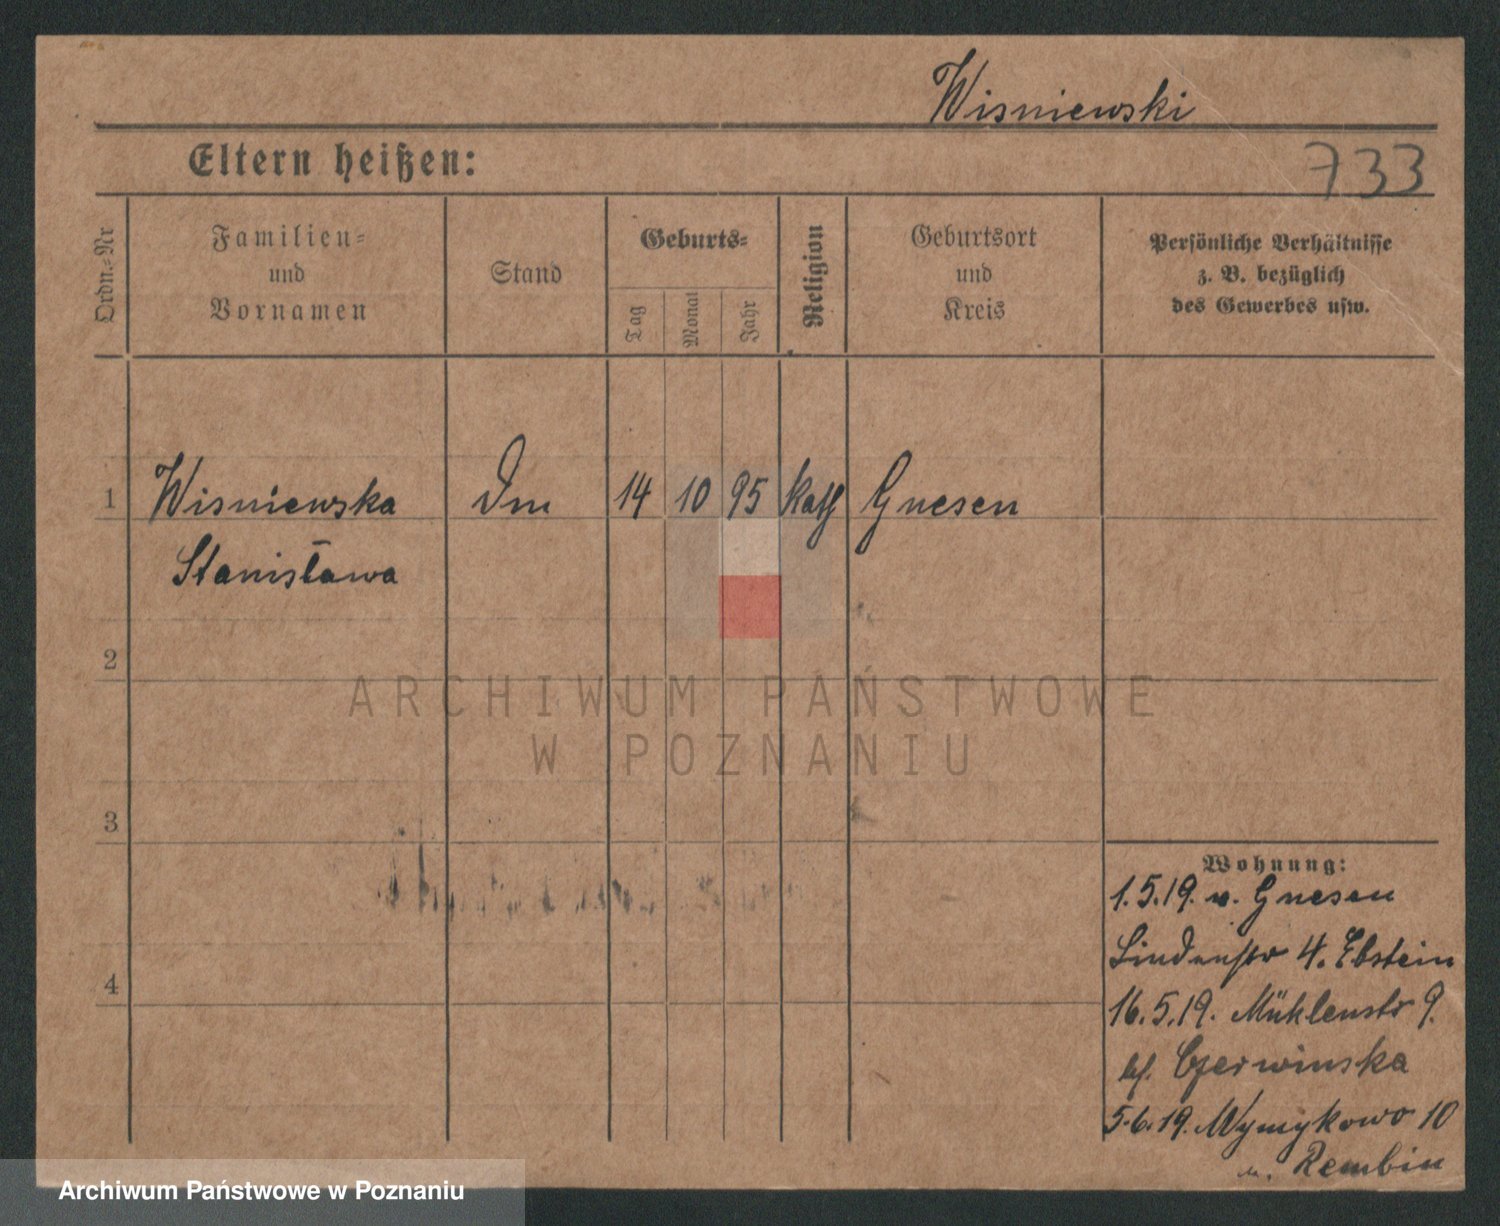 Wisniewski
Eltern heißen:
733
Ordn.-Nr
Familien-
und
Vornamen
Stand
Geburts-
Tag
Monat
Jahr
Religion
Geburtsort
und
Kreis
Persönliche Verhältnisse
z. B. bezüglich
des Gewerbes usw.
1 Wisniewska Dm 14 10 95 kath Gnesen
Stanisława
2
3
4
Wohnung:
1.5.19. v. Gnesen
Lindenstr 4. Ebstein
16.5.19. Mühlenstr 9.
Czerwinska
5.6.19. Wymykowo 10
Rembin
ARCHIWUM PAŃSTWOWE
W POZNANIU
Archiwum Państwowe w Poznaniu